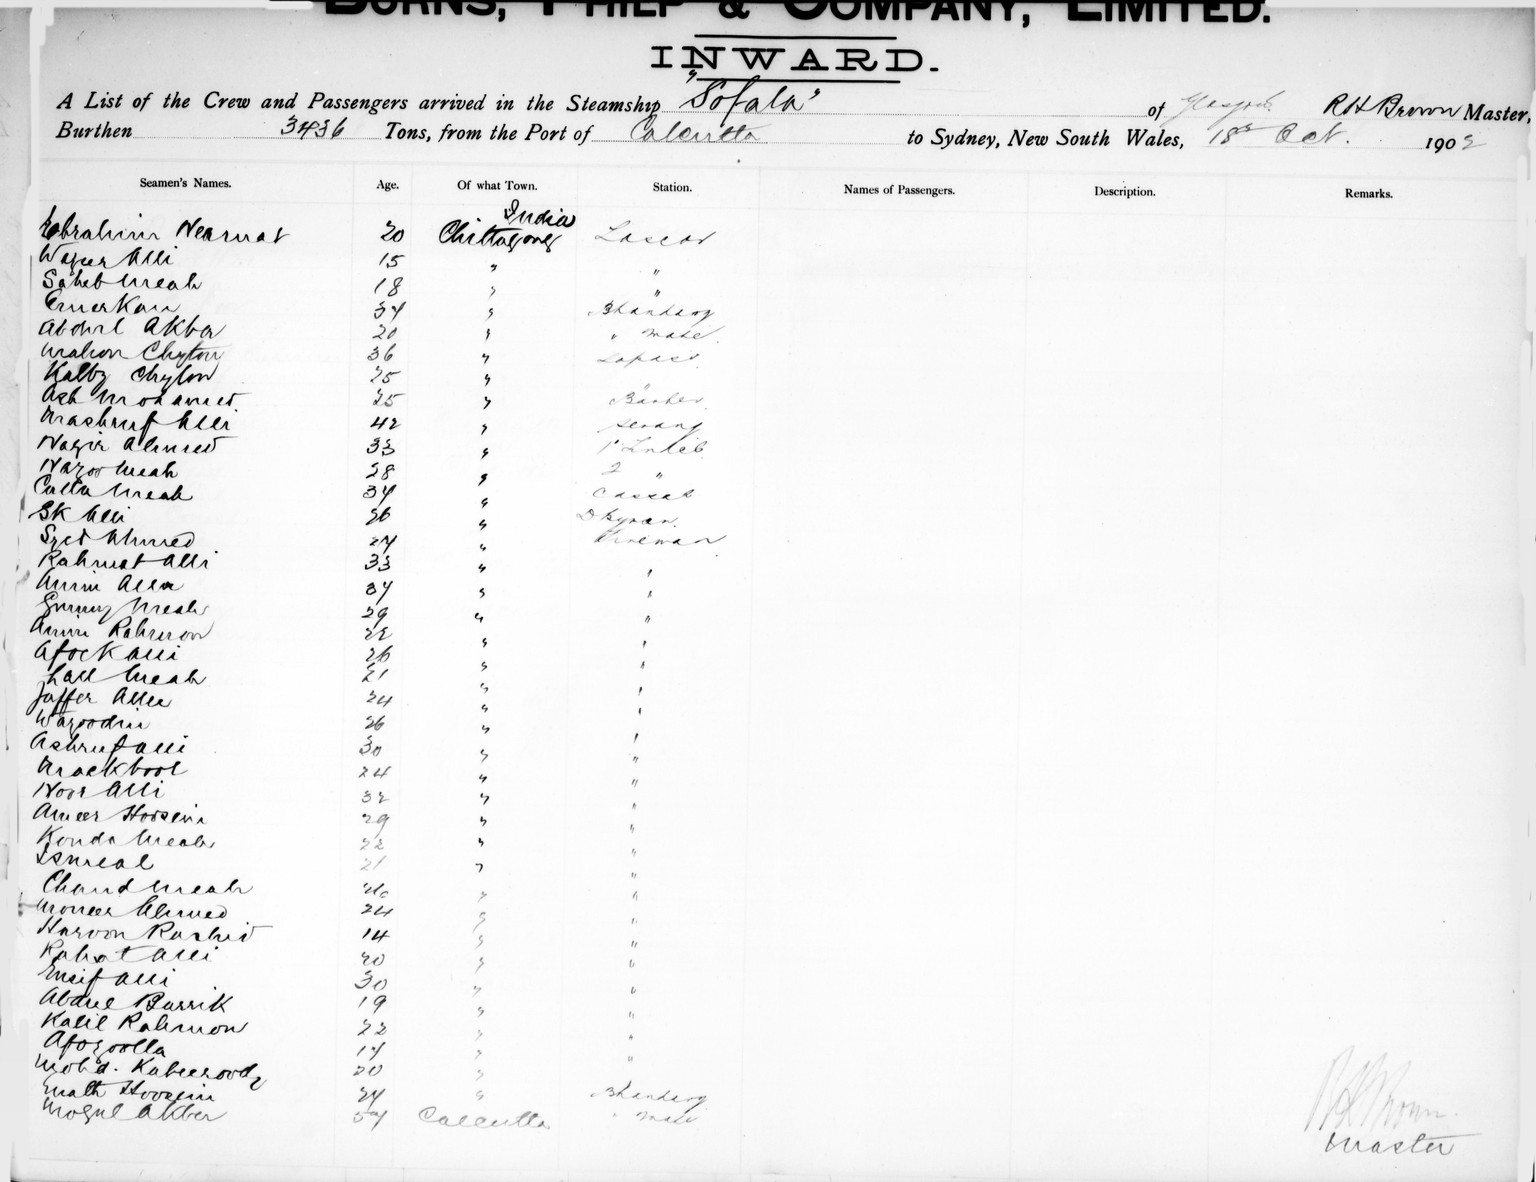 BURNS, PHILP & COMPANY, LIMITED.
INWARD.
A List of the Crew and Passengers arrived in the Steamship "Sofala" of Glasgow R H Brown Master,
Burthen 3436 Tons, from the Port of Calcutta to Sydney, New South Wales, 18th Oct. 190
Seamen's Names. Age. Of what Town. Station. Names of Passengers. Description. Remarks.
India
Ebrahim Neamat 20 Chittagong Lascar
Alli 15 " "
Saheb Meah 18 " "
Emerkan 34 " Bhandary
Abdul Akba 20 " " Mate
36 "
Kalby 25 " "
Mohamed 25 "
Mashruf Alli 42 " Serang
Nazir Ahmed 33 " 1st
Nazoo Meah 28 " 2 "
Calla Meah 34 " Cassab
SK Alli 26 "
Syed Ahmed 24 " Fireman
Rahmat Alli 33 " "
Amin Alla 34 " "
Meah 29 " "
Amin Rahmon 22 " "
Afock Alli 26 " "
Lall Meah 21 " "
Jaffer Allee 24 " "
Wazoodin 26 " "
Ashruf Alli 30 " "
Mackbool 24 " "
Noor Alli 32 " "
Ameer Hoosein 29 " "
Konda Meah 22 " "
Ismeal 21 " "
Chand Meah 26 " "
Moneer Ahmed 24 " "
Haroon Rashid 14 " "
Rahat Alli 20 " "
Ensif Alli 30 " "
Abdul Barrik 19 " "
Kalil Rahmon 22 " "
Afozoolla 17 " "
Mohd. Kabeeroody 20 "
Hoosein 24 " Bhandary
Mogul Akber 54 Calcutta " Mate
R H Brown
Master